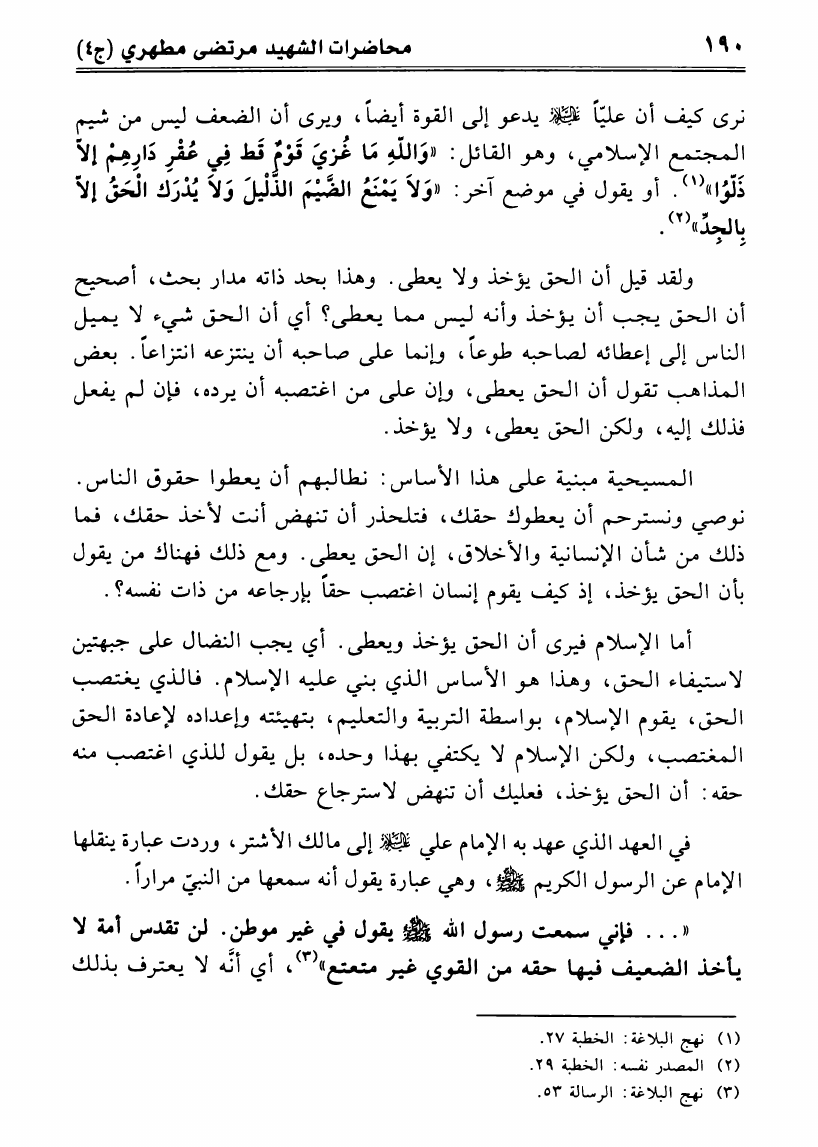 ١٩٠ محاضرات الشهيد مرتضى مطهري (ج٤)
نرى كيف أن عليّاً عليه السلام يدعو إلى القوة أيضاً، ويرى أن الضعف ليس من شيم
المجتمع الإسلامي، وهو القائل: «وَاللّهِ مَا غُزِيَ قَوْمٌ قَط فِي عُقْرِ دَارِهِمْ إلاّ
ذَلّوُا»(١). أو يقول في موضع آخر: «وَلاَ يَمْنَعُ الضَّيْمَ الذَّلْيلَ وَلاَ يُدْرَك الْحَقُ إلاّ
بِالجِدِّ»(٢).
ولقد قيل أن الحق يؤخذ ولا يعطى. وهذا بحد ذاته مدار بحث، أصحيح
أن الحق يجب أن يؤخذ وأنه ليس مما يعطى؟ أي أن الحق شيء لا يميل
الناس إلى إعطائه لصاحبه طوعاً، وإنما على صاحبه أن ينتزعه انتزاعاً. بعض
المذاهب تقول أن الحق يعطى، وإن على من اغتصبه أن يرده، فإن لم يفعل
فذلك إليه، ولكن الحق يعطى، ولا يؤخذ.
المسيحية مبنية على هذا الأساس: نطالبهم أن يعطوا حقوق الناس.
نوصي ونسترحم أن يعطوك حقك، فتلحذر أن تنهض أنت لأخذ حقك، فما
ذلك من شأن الإنسانية والأخلاق، إن الحق يعطى. ومع ذلك فهناك من يقول
بأن الحق يؤخذ، إذ كيف يقوم إنسان اغتصب حقاً بإرجاعه من ذات نفسه؟.
أما الإسلام فيرى أن الحق يؤخذ ويعطى. أي يجب النضال على جبهتين
لاستيفاء الحق، وهذا هو الأساس الذي بني عليه الإسلام. فالذي يغتصب
الحق، يقوم الإسلام، بواسطة التربية والتعليم، بتهيئته وإعداده لإعادة الحق
المغتصب، ولكن الإسلام لا يكتفي بهذا وحده، بل يقول للذي اغتصب منه
حقه: أن الحق يؤخذ، فعليك أن تنهض لاسترجاع حقك.
في العهد الذي عهد به الإمام علي عليه السلام إلى مالك الأشتر، وردت عبارة ينقلها
الإمام عن الرسول الكريم ﷺ، وهي عبارة يقول أنه سمعها من النبيّ مراراً.
«... فإني سمعت رسول الله ﷺ يقول في غير موطن. لن تقدس أمة لا
يأخذ الضعيف فيها حقه من القوي غير متعتع»(٣)، أي أنَّه لا يعترف بذلك
(١) نهج البلاغة: الخطبة ٢٧.
(٢) المصدر نفسه: الخطبة ٢٩.
(٣) نهج البلاغة: الرسالة ٥٣.